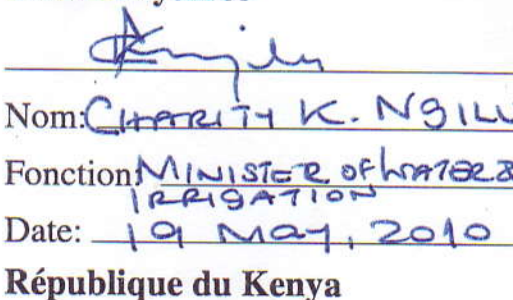 Nom: CHARITY K. NGILU
Fonction: MINISTER OF WATER &
IRRIGATION
Date: 19 MAY, 2010
République du Kenya